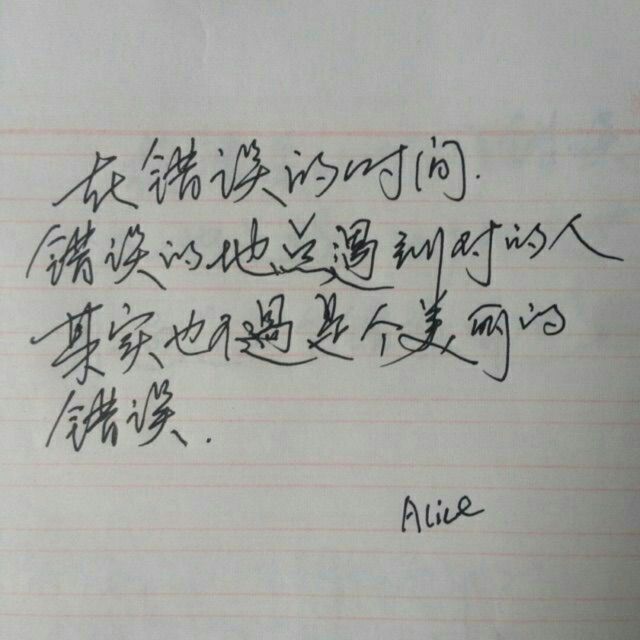 在错误的时间.
错误的地点遇到对的人
其实也不過是个美丽的
错误.
Alice